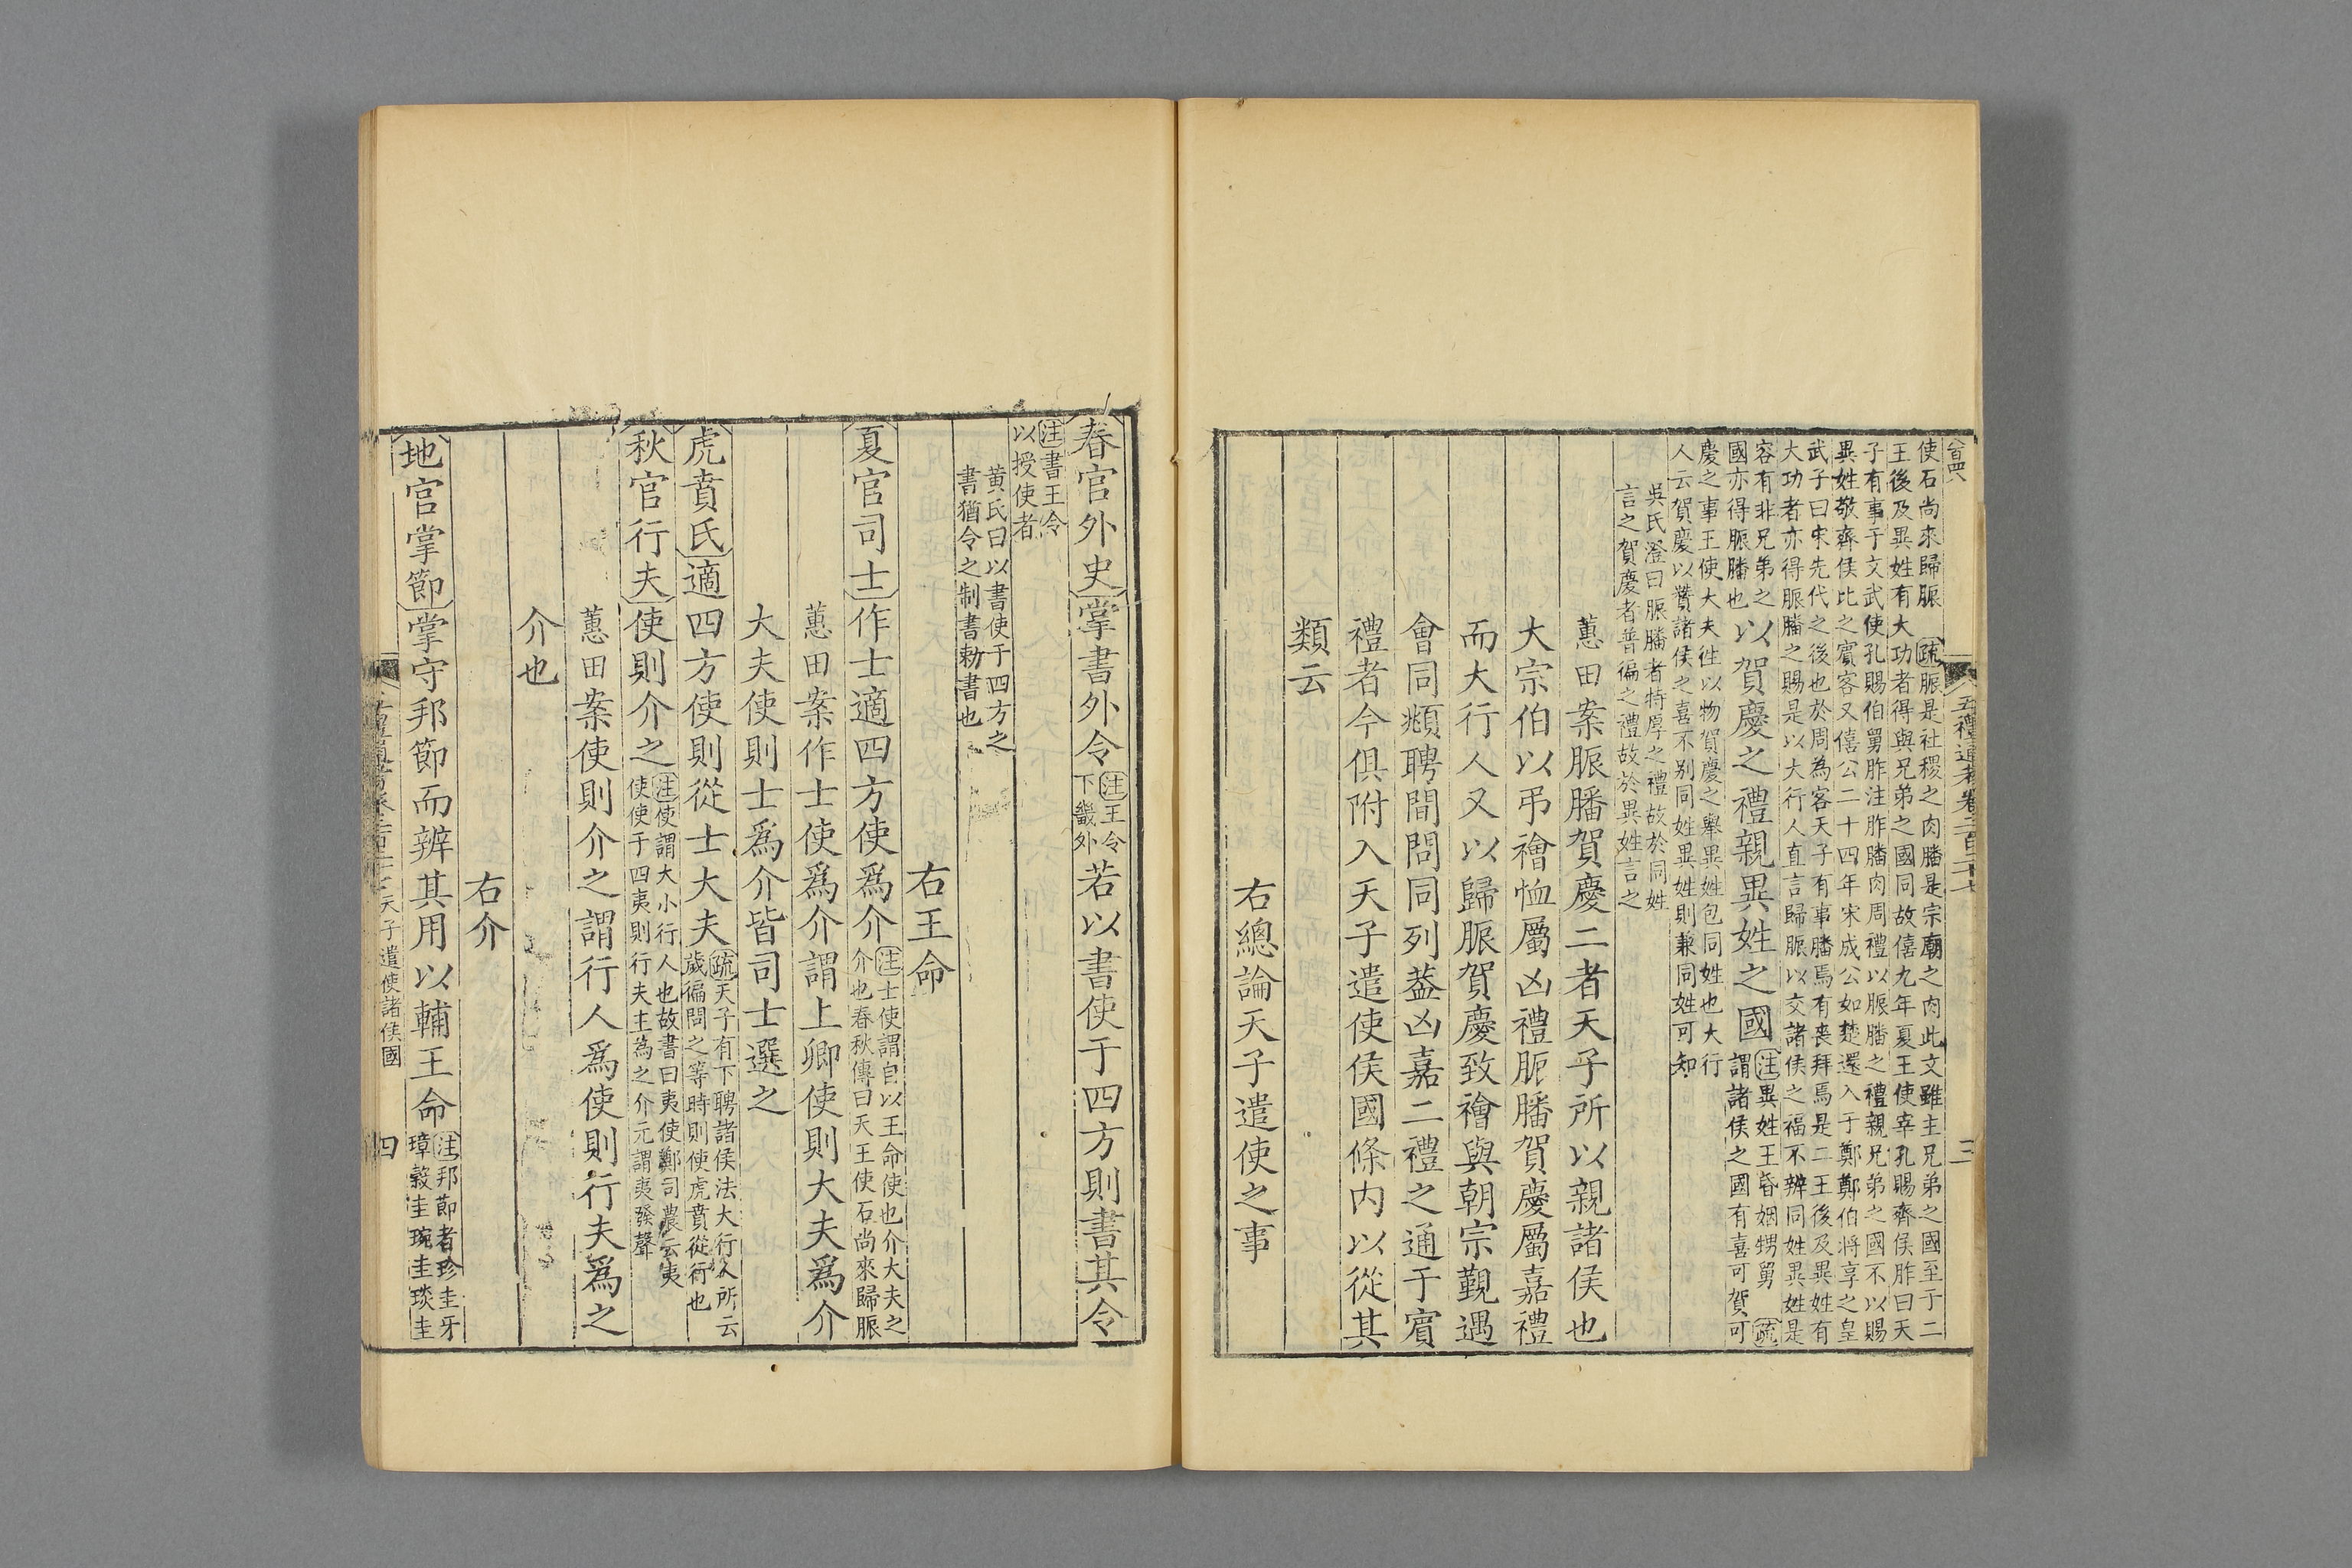 使石尚來歸脤 疏脤是社稷之肉膰是宗廟之肉此文雖主兄弟之國至于二
王後及異姓有大功者得與兄弟之國同故僖九年夏王使宰孔賜齊侯胙曰天
子有事于文武使孔賜伯舅胙注胙膰肉周禮以脤膰之禮親兄弟之國不以賜
異姓敬齊侯比之賓客又僖公二十四年宋成公如楚還入于鄭鄭伯將享之皇
武子曰宋先代之後也於周為客天子有事膰焉有喪拜焉是二王後及異姓有
大功者亦得脤膰之賜是以大行人直言歸脤以交諸侯之福不辨同姓異姓是
容有非兄弟之
國亦得脤膰也
以賀慶之禮親異姓之國
注異姓王昏姻甥舅 疏
謂諸侯之國有喜可賀可
慶之事王使大夫往以物賀慶之舉異姓包同姓也大行
人云賀慶以贊諸侯之喜不别同姓異姓則兼同姓可知
吳氏澄曰脤膰者特厚之禮故於同姓
言之賀慶者普徧之禮故於異姓言之
蕙田案脤膰賀慶二者天子所以親諸侯也
大宗伯以弔禬恤屬凶禮脤膰賀慶屬嘉禮
而大行人又以歸脤賀慶致禬與朝宗覲遇
會同頫聘間問同列葢凶嘉二禮之通于賓
禮者今俱附入天子遣使侯國條内以從其
類云
右總論天子遣使之事
五禮通考卷二百二十七
三
春官外史掌書外令
注王令
下畿外
若以書使于四方則書其令
注書王令
以授使者
黄氏曰以書使于四方之
書猶令之制書勅書也
右王命
夏官司士作士適四方使爲介
注士使謂自以王命使也介大夫之
介也春秋傳曰天王使石尚來歸脤
蕙田案作士使爲介謂上卿使則大夫爲介
大夫使則士爲介皆司士選之
虎賁氏適四方使則從士大夫
疏天子有下聘諸侯法大行人所云
歲徧問之等時則使虎賁從行也
秋官行夫使則介之
注使謂大小行人也故書曰夷使鄭司農云夷
使使于四夷則行夫主為之介元謂夷發聲
蕙田案使則介之謂行人爲使則行夫爲之
介也
右介
地官掌節掌守邦節而辨其用以輔王命
注邦節者珍圭牙
璋穀圭琬圭琰圭
天子遣使諸侯國
四